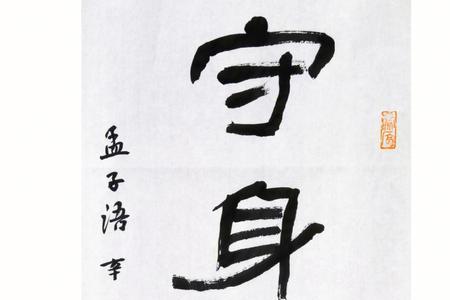 守身
孟子语 辛